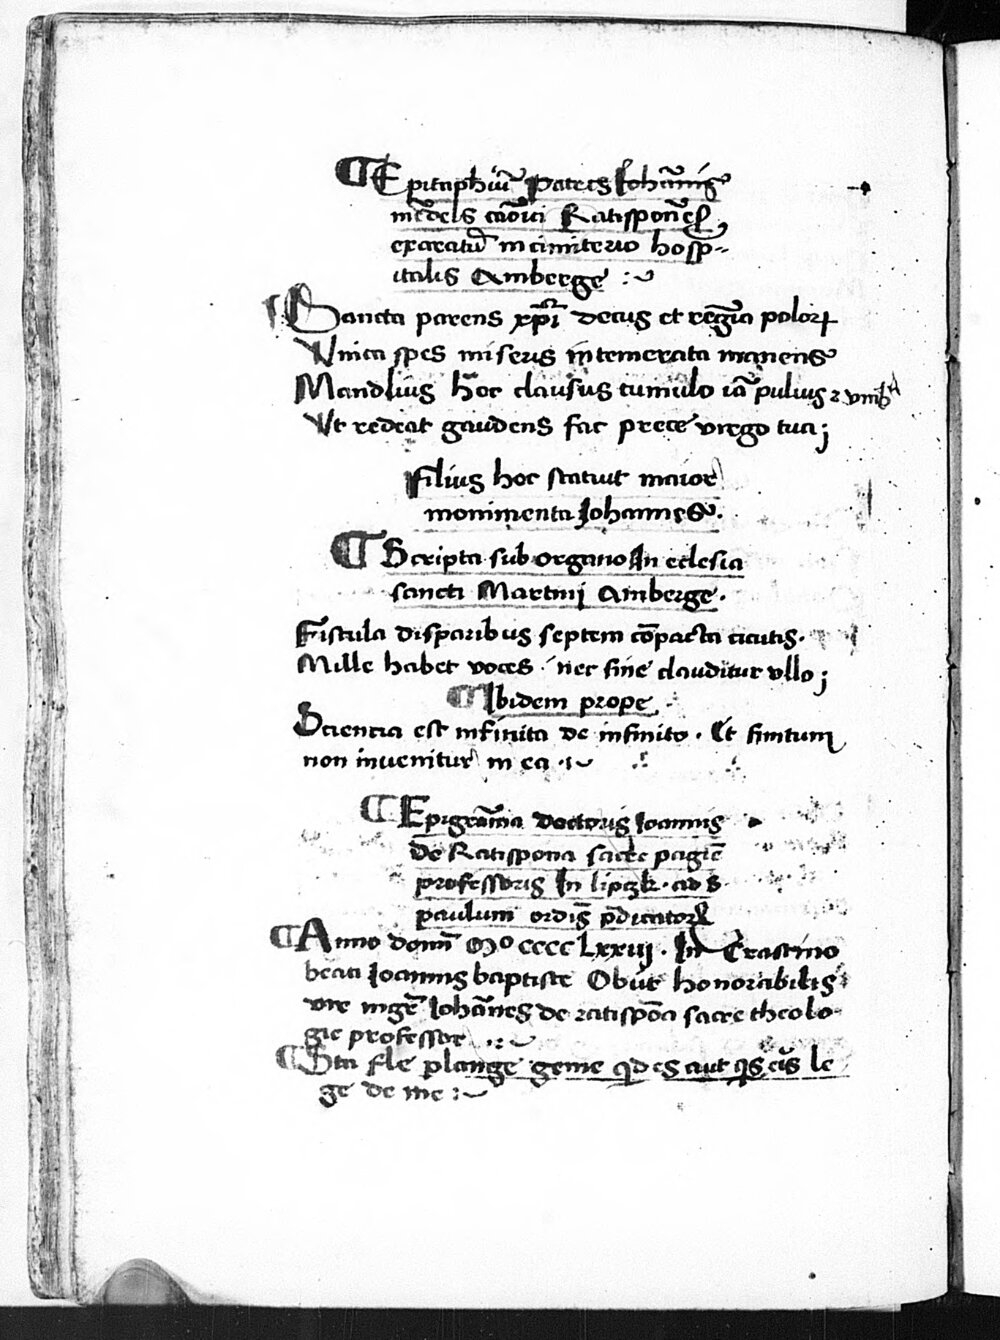 ¶ Epitaphiū Patris Johānis
mēdels cāōici Ratisponēs
exaratū in cimiterio hosp-
italis Amberge :~
Sancta parens xp̄i decus et regīa polorꝝ
Vnica spes miseris intemerata manens
Mandlius hōc clausus tumulo iā puluis ⁊ vmbra
Vt redeat gaudens fac prece virgo tua;
Filius hoc statuit maior
monimenta Johannes.
¶ Scripta sub organo In eclesia
sancti Martinj Amberge.
Fistula disparibus septem cōpacta cicutis.
Mille habet voces · nec fine clauditur vllo;
¶ Ibidem prope
Sciencia est infinita de infinito. Et finitum
non invenitur in ea :~
¶ Epigrāma doctoris Joannis
de Ratispona sacre pagīe
professoris In lipczk. ad S
paulum ordīs p̄dicatorꝝ
¶ Anno domī Mo cccc Lxxiij. In Crastino
beati Joannis baptiste Obijt honorabilis
vir mgr̄ Johānes de ratispōa sacre theolo-
gie professor ..:~
¶ Sta fle plange geme qd es aut qs eis le
ge de me :~